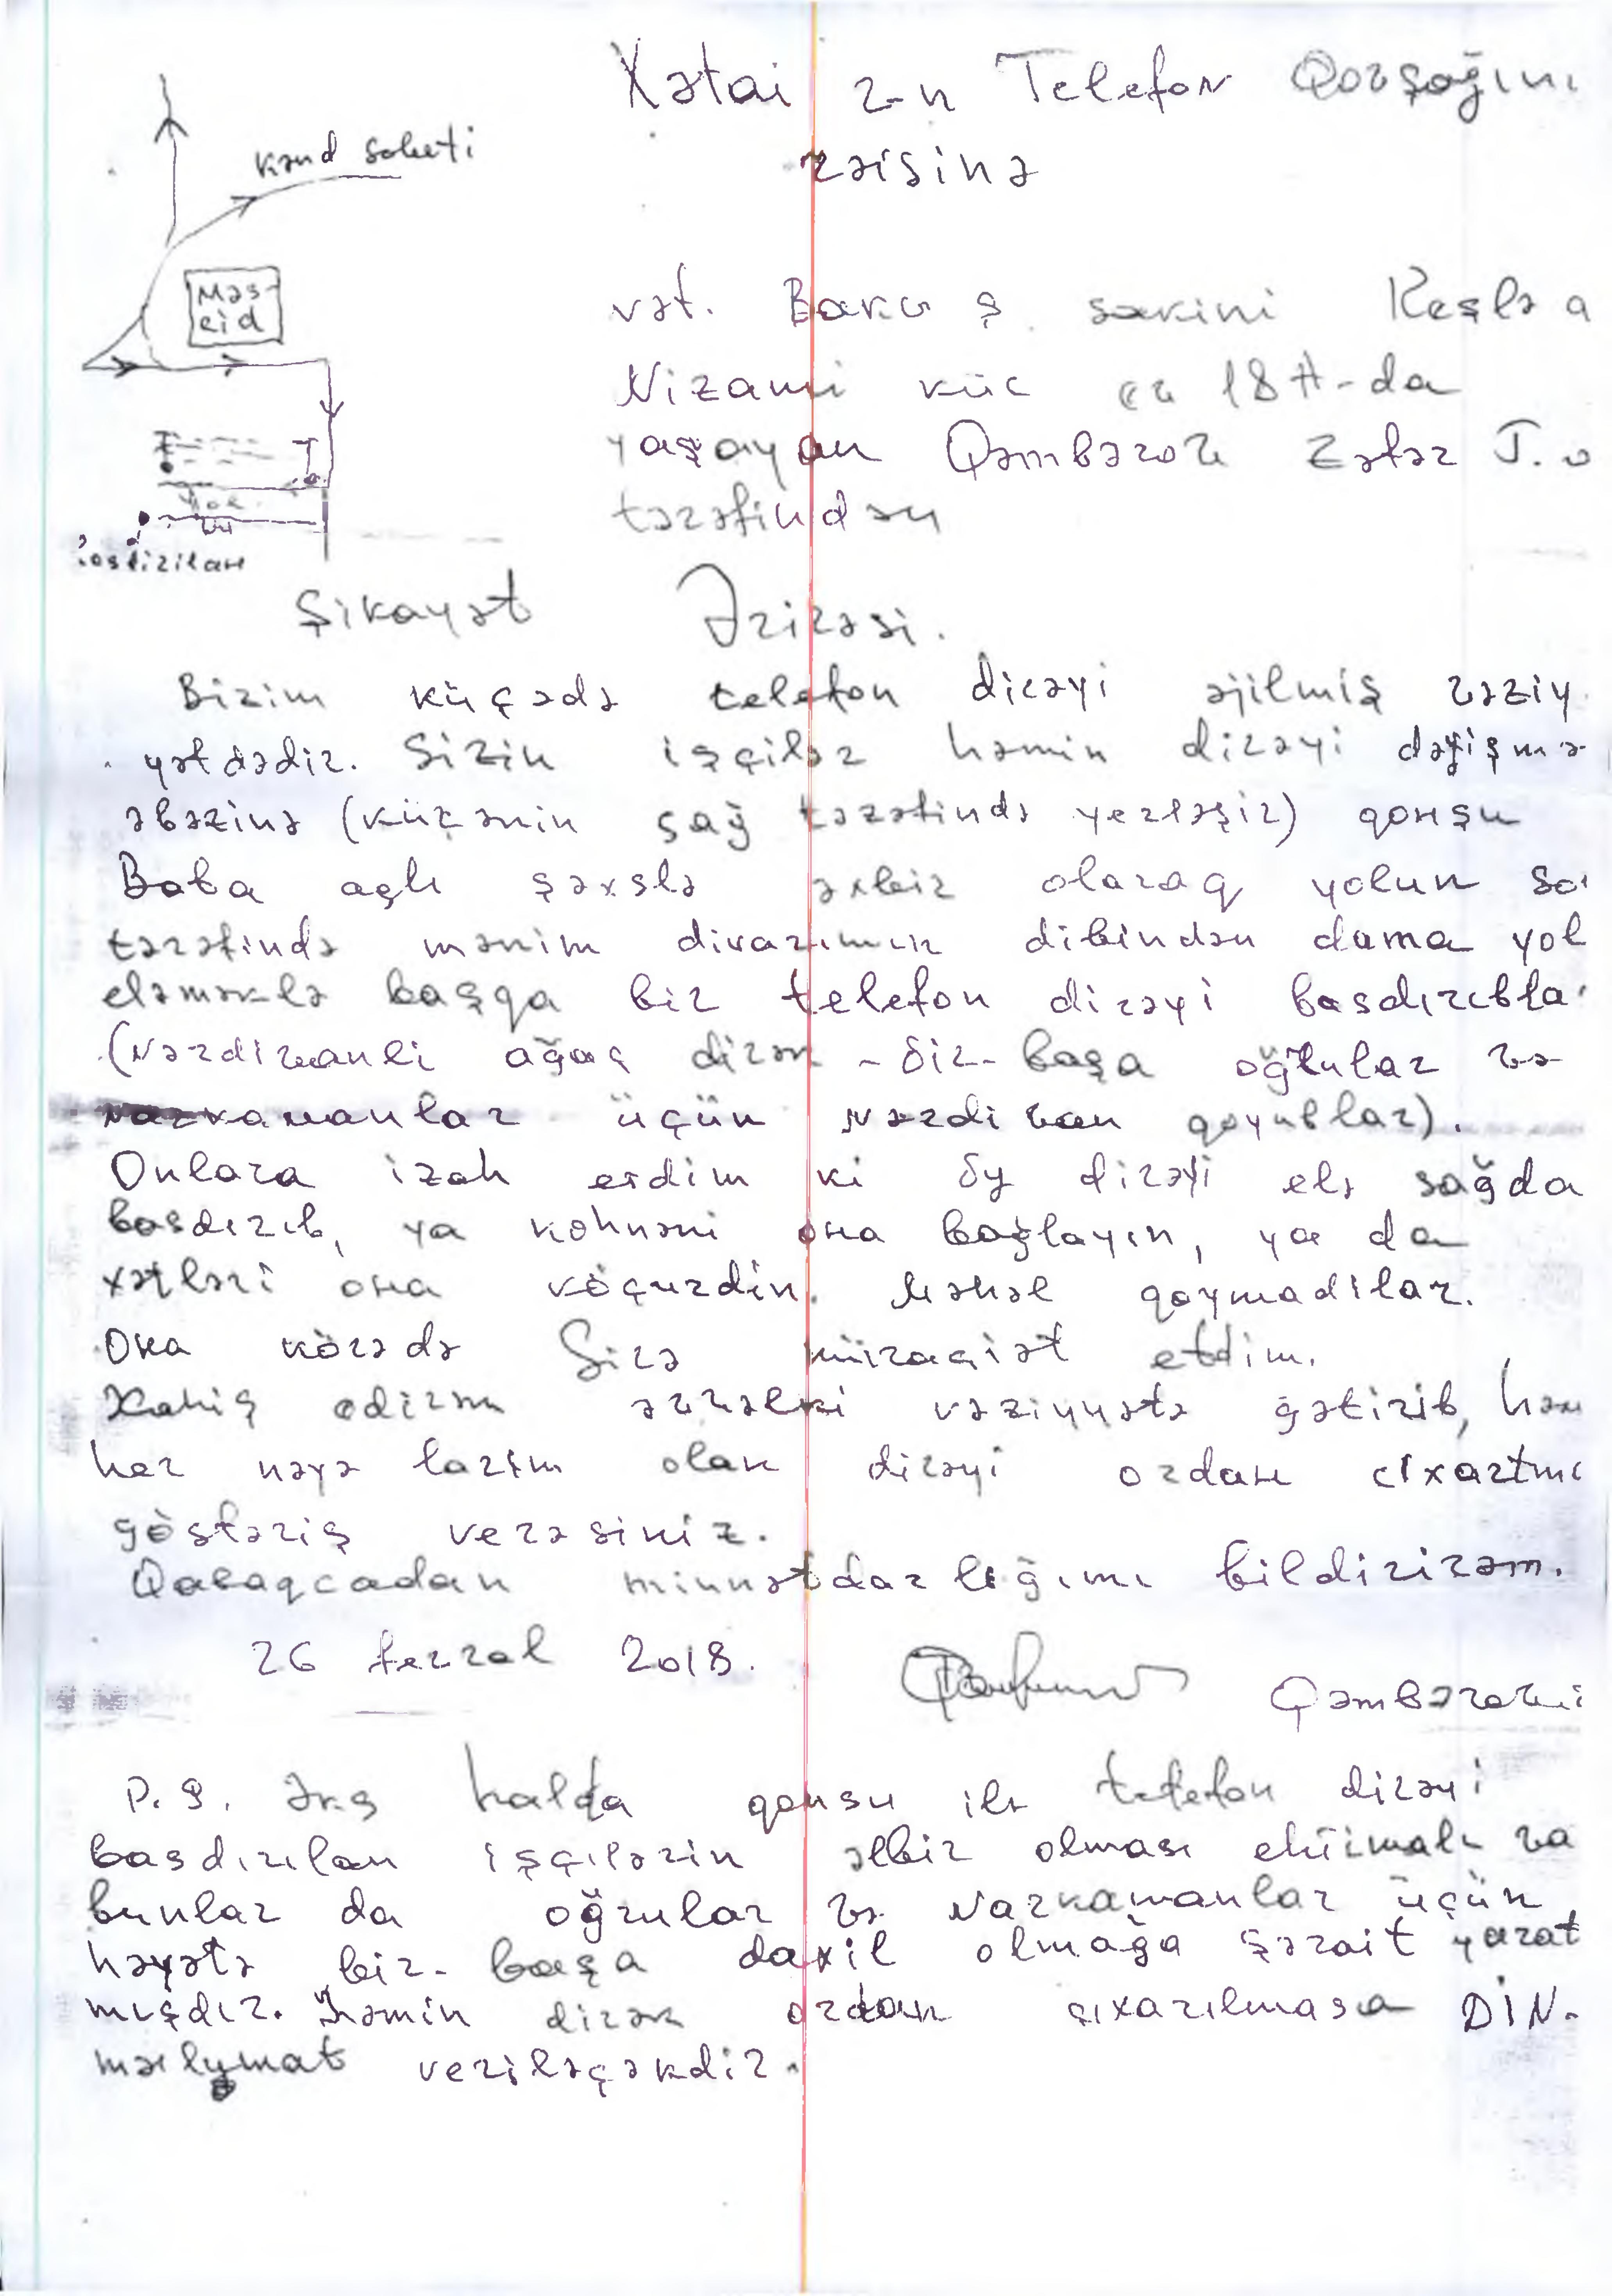 Xətai r-n Telefon Qovşağını
rəisinə
kənd soveti
Məs-
cid
vət. Bakı ş. sakini Keşlə q
Nizami küç ev 18A-da
yaşayan Qəmbərov Zəfər T. o
tərəfindən
Şikayət Ərizəsi.
Bizim küçədə telefon dirəyi əjilmiş vəziy
yətdədir. Sizin işçilər həmin dirəyi dəyişmə
əvəzinə (küçənin sağ tərəfində yerləşir) qonşu
Baba adlı şəxslə əlbir olaraq yolun so
tərəfində mənim divarımın dibindən dama yol
eləməklə başqa bir telefon dirəyi basdırıbla
(Nərdivanlı ağac dirək - bir-başa oğrular və
narkamanlar üçün nərdivan qoyublar).
Onlara izah etdim ki öy dirəyi elə sağda
basdırıb, ya köhnəni ona bağlayın, ya da
xətləri ona köçürdün. Məhəl qoymadılar.
Ona körədə Sizə müraciət etdim.
Xahiş edirəm əvvəlki vəziyyətə gətirib, həm
hər nəyə lazım olan dirəyi ordan çıxartmı
göstəriş verəsiniz.
Qabaqcadan minnətdarlığımı bildirirəm.
26 fevral 2018. Qəmbərov
P.S. Əks halda qonşu ilə telefon dirəyi
basdırılan işçilərin əlbir olması ehtimalı və
bunlar da oğrular və Narkamanlar üçün
həyətə bir-başa daxil olmağa şərait yarat
mışdır. Həmin dirək ordan çıxarılmasa DİN-
məlumat veriləcəkdir.